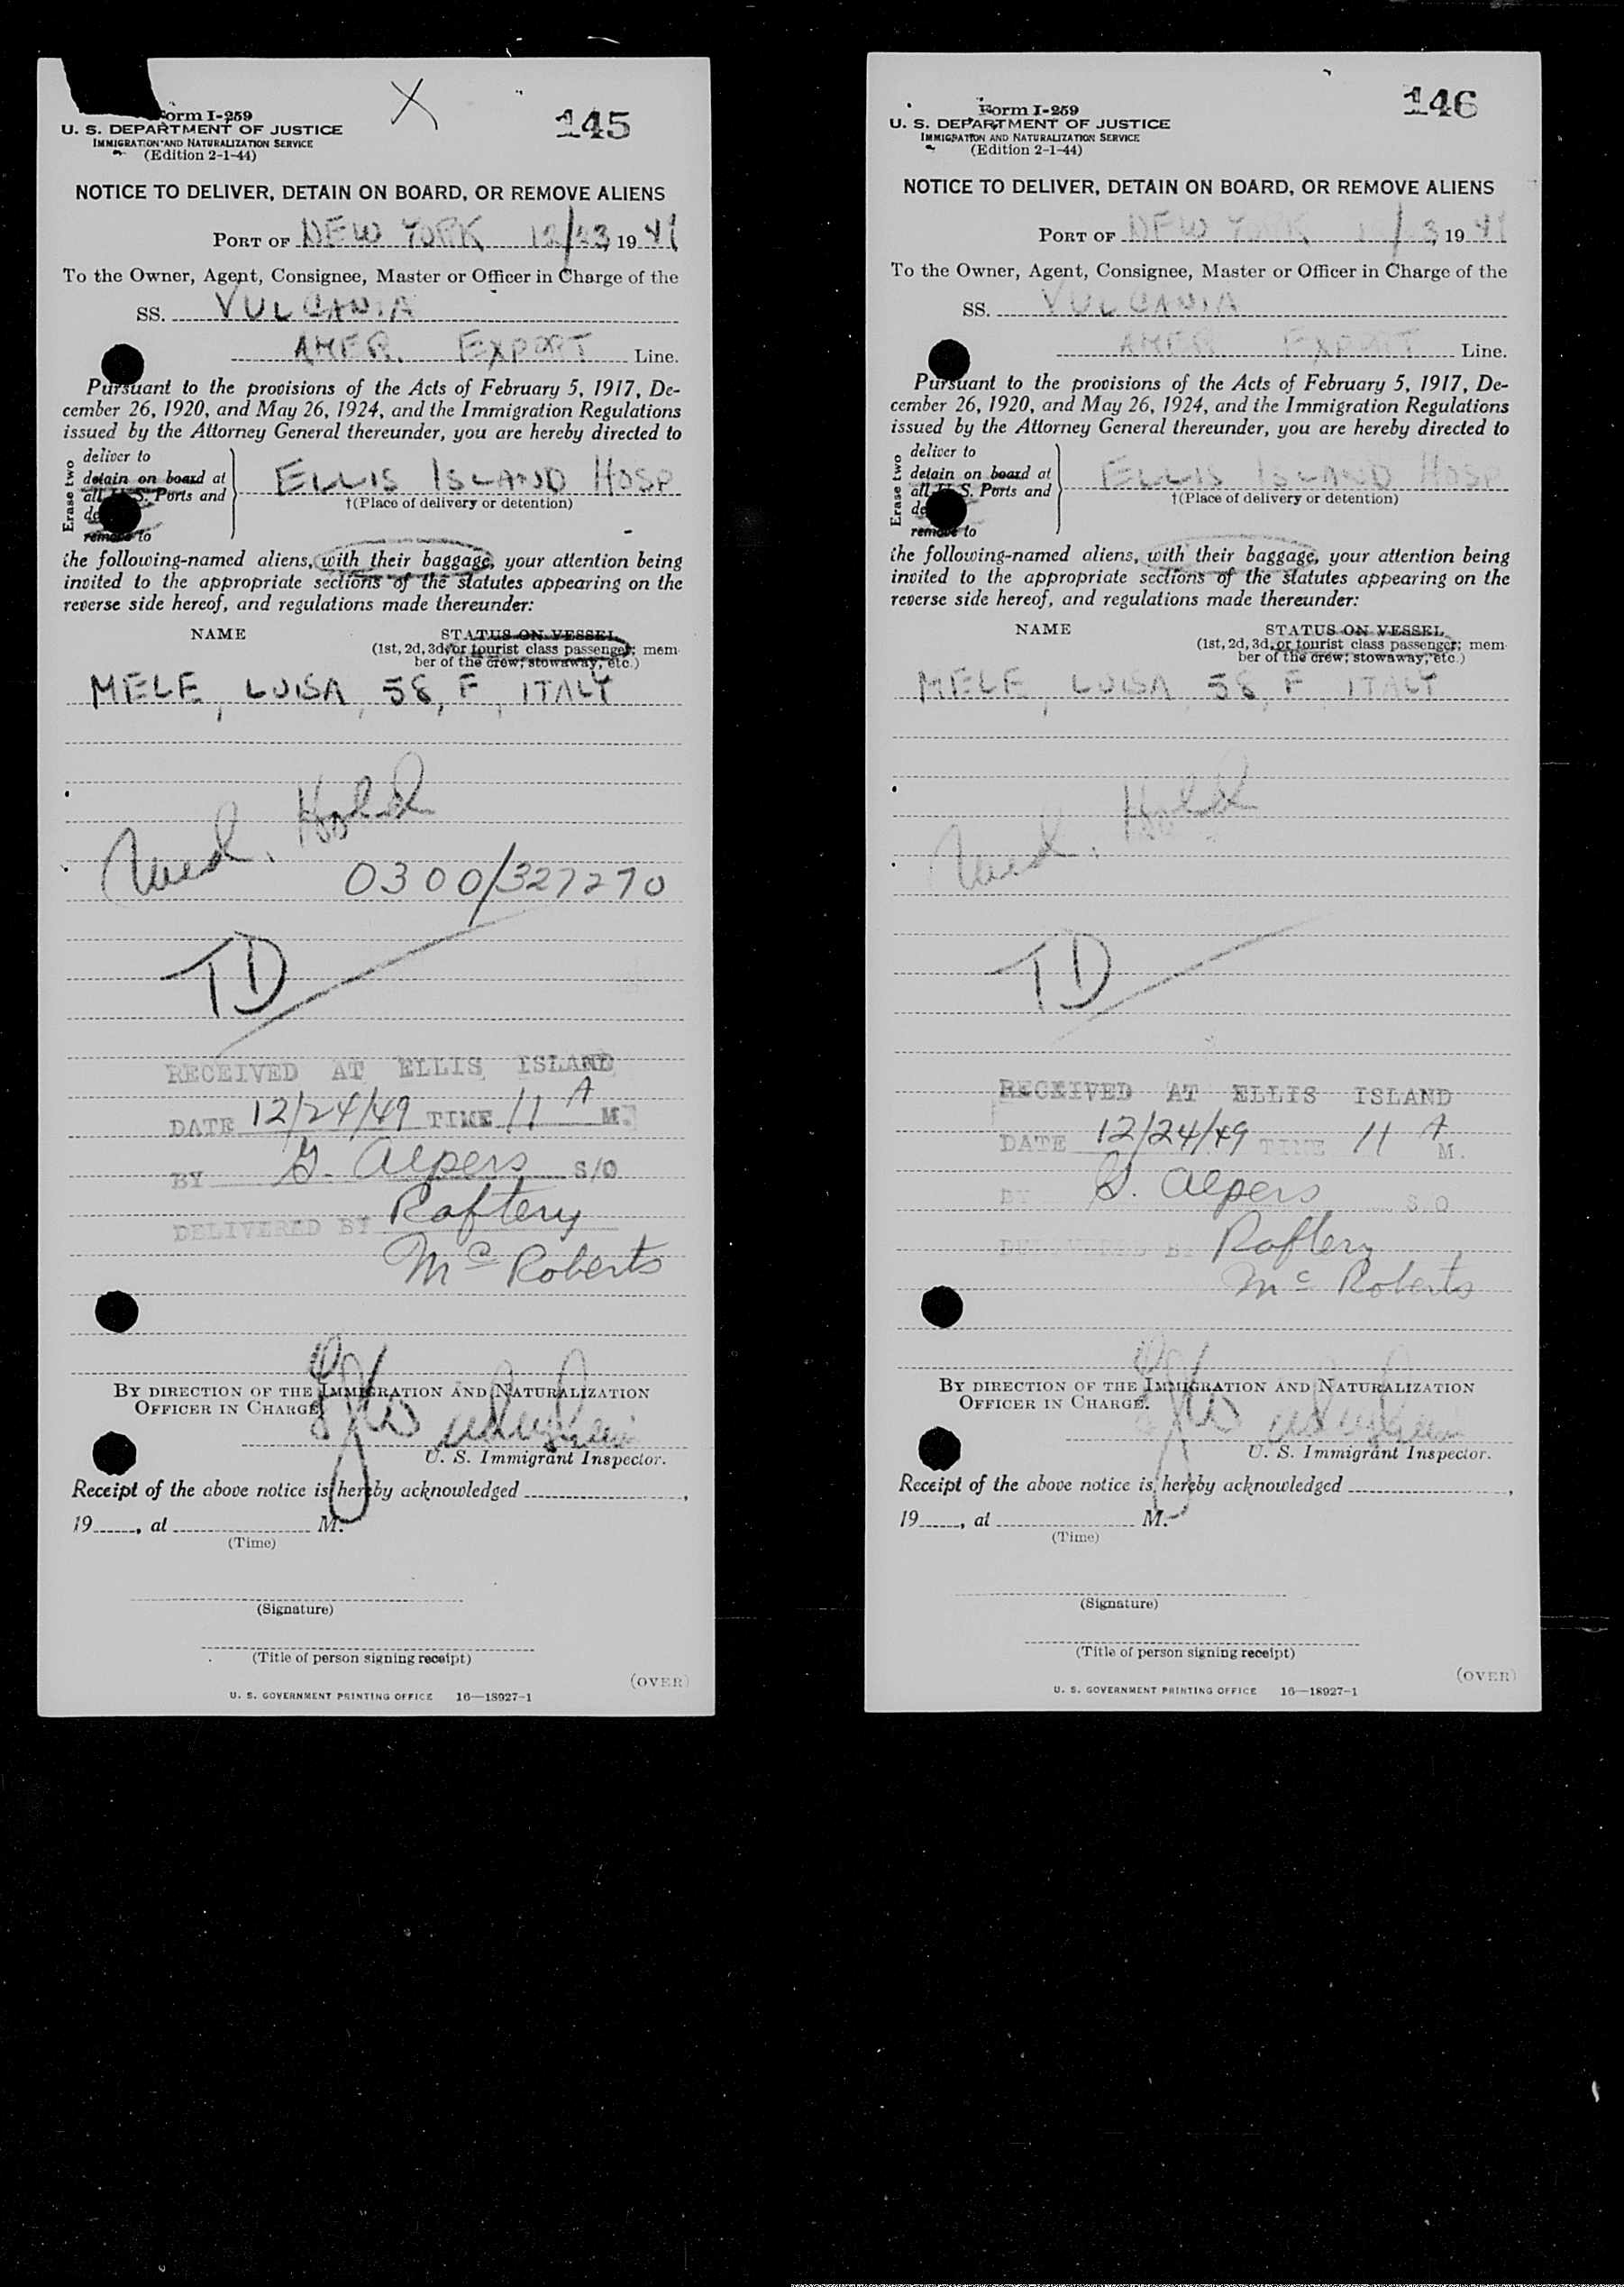 Form I-259
U. S. DEPARTMENT OF JUSTICE
IMMIGRATION AND NATURALIZATION SERVICE
(Edition 2-1-44)
X
145
NOTICE TO DELIVER, DETAIN ON BOARD, OR REMOVE ALIENS
PORT OF NEW YORK 12/23, 19 49
To the Owner, Agent, Consignee, Master or Officer in Charge of the
SS. VULCANIA
AMER. EXPORT Line.
Pursuant to the provisions of the Acts of February 5, 1917, De-
cember 26, 1920, and May 26, 1924, and the Immigration Regulations
issued by the Attorney General thereunder, you are hereby directed to
Erase two
deliver to
detain on board at
all U. S. Ports and
remove to
ELLIS ISLAND HOSP
†(Place of delivery or detention)
the following-named aliens, with their baggage, your attention being
invited to the appropriate sections of the statutes appearing on the
reverse side hereof, and regulations made thereunder:
NAME
STATUS ON VESSEL
(1st, 2d, 3d, or tourist class passenger; mem-
ber of the crew; stowaway, etc.)
MELE, LUISA, 58, F, ITALY
Med. Hold
0300/327270
TD
RECEIVED AT ELLIS ISLAND
DATE 12/24/49 TIME 11 A M.
BY G. Alpers S/O
DELIVERED BY Raftery
McRoberts
BY DIRECTION OF THE IMMIGRATION AND NATURALIZATION
OFFICER IN CHARGE.
U. S. Immigrant Inspector.
Receipt of the above notice is hereby acknowledged
19 , at M.
(Time)
(Signature)
(Title of person signing receipt)
(OVER)
U. S. GOVERNMENT PRINTING OFFICE 16—18927-1
Form I-259
U. S. DEPARTMENT OF JUSTICE
IMMIGRATION AND NATURALIZATION SERVICE
(Edition 2-1-44)
146
NOTICE TO DELIVER, DETAIN ON BOARD, OR REMOVE ALIENS
PORT OF NEW YORK 12/23, 19 49
To the Owner, Agent, Consignee, Master or Officer in Charge of the
SS. VULCANIA
AMER EXPORT Line.
Pursuant to the provisions of the Acts of February 5, 1917, De-
cember 26, 1920, and May 26, 1924, and the Immigration Regulations
issued by the Attorney General thereunder, you are hereby directed to
Erase two
deliver to
detain on board at
all U. S. Ports and
remove to
ELLIS ISLAND HOSP
†(Place of delivery or detention)
the following-named aliens, with their baggage, your attention being
invited to the appropriate sections of the statutes appearing on the
reverse side hereof, and regulations made thereunder:
NAME
STATUS ON VESSEL
(1st, 2d, 3d, or tourist class passenger; mem-
ber of the crew; stowaway, etc.)
MELE, LUISA, 58, F ITALY
Med. Hold
TD
RECEIVED AT ELLIS ISLAND
DATE 12/24/49 TIME 11 A M.
BY G. Alpers S/O
DELIVERED BY Raftery
McRoberts
BY DIRECTION OF THE IMMIGRATION AND NATURALIZATION
OFFICER IN CHARGE.
U. S. Immigrant Inspector.
Receipt of the above notice is hereby acknowledged
19 , at M.
(Time)
(Signature)
(Title of person signing receipt)
(OVER)
U. S. GOVERNMENT PRINTING OFFICE 16—18927-1